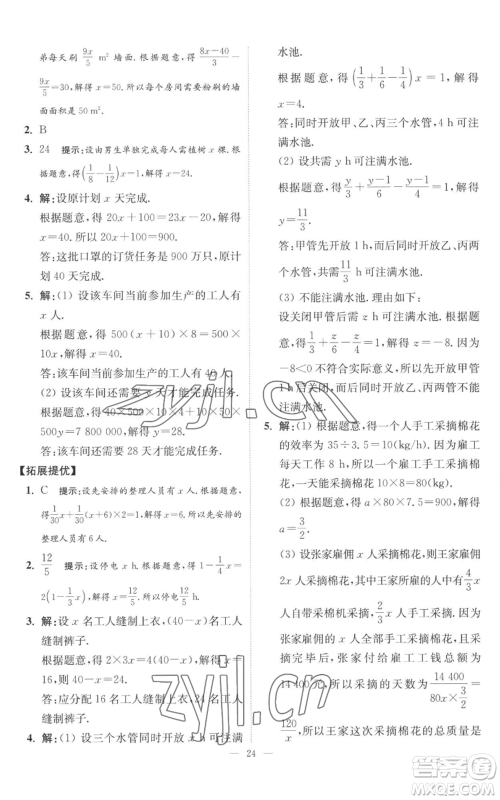 弟每天刷 9x/5 m² 墙面.根据题意,得 (8x-40)/3 -
9x/5=30,解得 x=50.所以每个房间需要粉刷的墙
面面积是 50 m².
2. B
3. 24 提示:设由男生单独完成每人需植树 x 棵.根据题
意,得(1/8-1/12)x=1,解得 x=24.
4. 解:设原计划 x 天完成.
根据题意,得 20x+100=23x-20,解得
x=40.所以 20x+100=900.
答:这批口罩的订货任务是 900 万只,原计
划 40 天完成.
5. 解:(1) 设该车间当前参加生产的工人有
x 人.
根据题意,得 500(x+10)×8=500×10x,
解得 x=40.
答:该车间当前参加生产的工人有 40 人.
(2) 设该车间还需要 x 天才能完成任务.
根据题意,得 10×500×10×4+10×50×
500y=7 800 000,解得 y=28.
答:该车间还需要 28 天才能完成任务.
【拓展提优】
1. C 提示:设先安排的整理人员有 x 人.根据题意,得
1/30 x+1/30(x+6)×2=1,解得 x=6.所以先安排的
整理人员有 6 人.
2. 12/5 提示:设停电 x h.根据题意,得 1-1/4 x=
2(1-1/3 x),解得 x=12/5.
3. 解:设 x 名工人缝制上衣,(40-x)名工人
缝制裤子.
根据题意,得 2×3x=4(40-x),解得 x=
16,则 40-x=24.
答:应分配 16 名工人缝制上衣,24 名工人
缝制裤子.
4. 解:(1) 设同时开放三个水管 x h 可注满
水池.
根据题意,得(1/3+1/6-1/4)x=1,解得
x=4.
答:同时开放甲、乙、丙三个水管,4 h 可注
满水池.
(2) 设共需 y h 可注满水池.
根据题意,得 y/3+(y-1)/6-(y-1)/4=1,解得
y=11/3.
答:甲管先开放 1 h,而后同时开放乙、丙两
管,共需 11/3 h 可注满水池.
(3) 不能注满水池.理由如下:
设关闭甲管后需 z h 可注满水池.根据题
意,得 1/3+z/6-z/4=1,解得 z=-8.因为
-8<0 不符合实际意义,所以先开放甲管
1 h 后关闭,而后同时开放乙、丙两管,不能
注满水池.
5. 解:(1) 根据题意,得一个人手工采摘棉花
的效率为 35÷3.5=10(kg/h).因为雇工
每天工作 8 h,所以一个雇工手工采摘棉
花,一天能采摘棉花 10×8=80(kg).
(2) 根据题意,得 a×80×7.5=900,解得
a=3/2.
(3) 设张家雇佣 x 人采摘棉花,则王家雇佣
2x 人采摘棉花,其中王家所雇的人中有 4/3 x
人自带彩棉机采摘,2/3 x 人手工采摘.因为
张家雇佣的 x 人全部手工采摘棉花,且采
摘完毕后,张家付给雇工工钱总额为
14 400 元,所以采摘的天数为 14 400/(80x×3/2)=
120/x,所以王家这次采摘棉花的总质量是
24
zyjl.cn